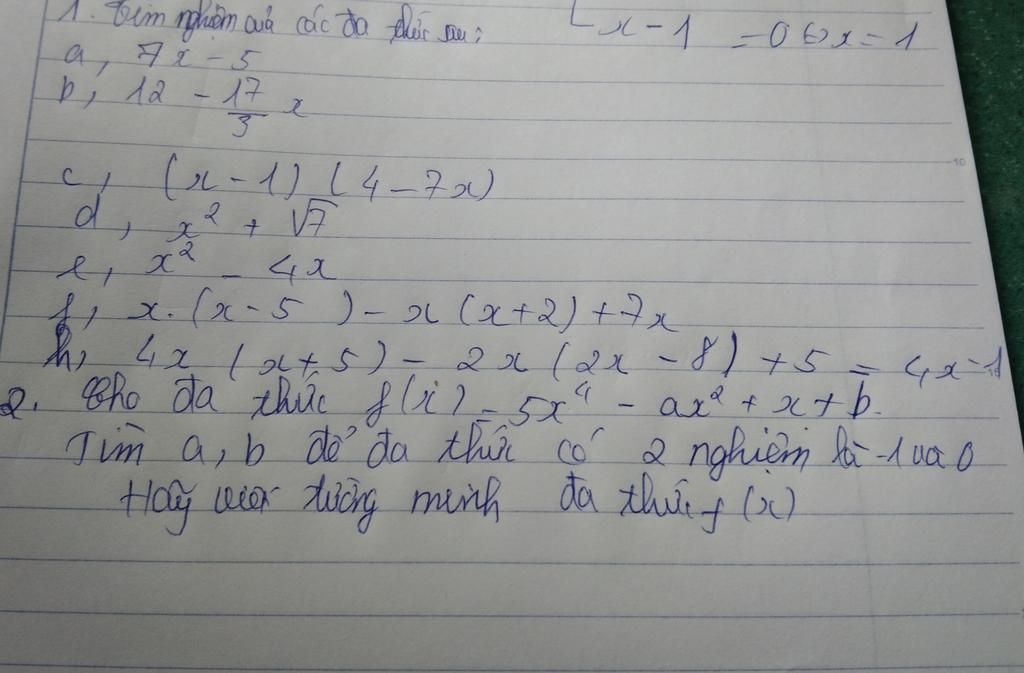 1. Tìm nghiệm của các đa thức sau:
x - 1 = 0 <=> x = 1
a, 7x - 5
b, 12 - 17/3 x
c, (x - 1) (4 - 7x)
d, x² + √7
e, x² - 4x
f, x. (x - 5) - x (x + 2) + 7x
h, 4x (x + 5) - 2x (2x - 8) + 5 = 4x - 1
2. Cho đa thức f(x) = 5x⁴ - ax² + x + b.
Tìm a, b để đa thức có 2 nghiệm là -1 và 0
Hãy viết tường minh đa thức f(x)
10